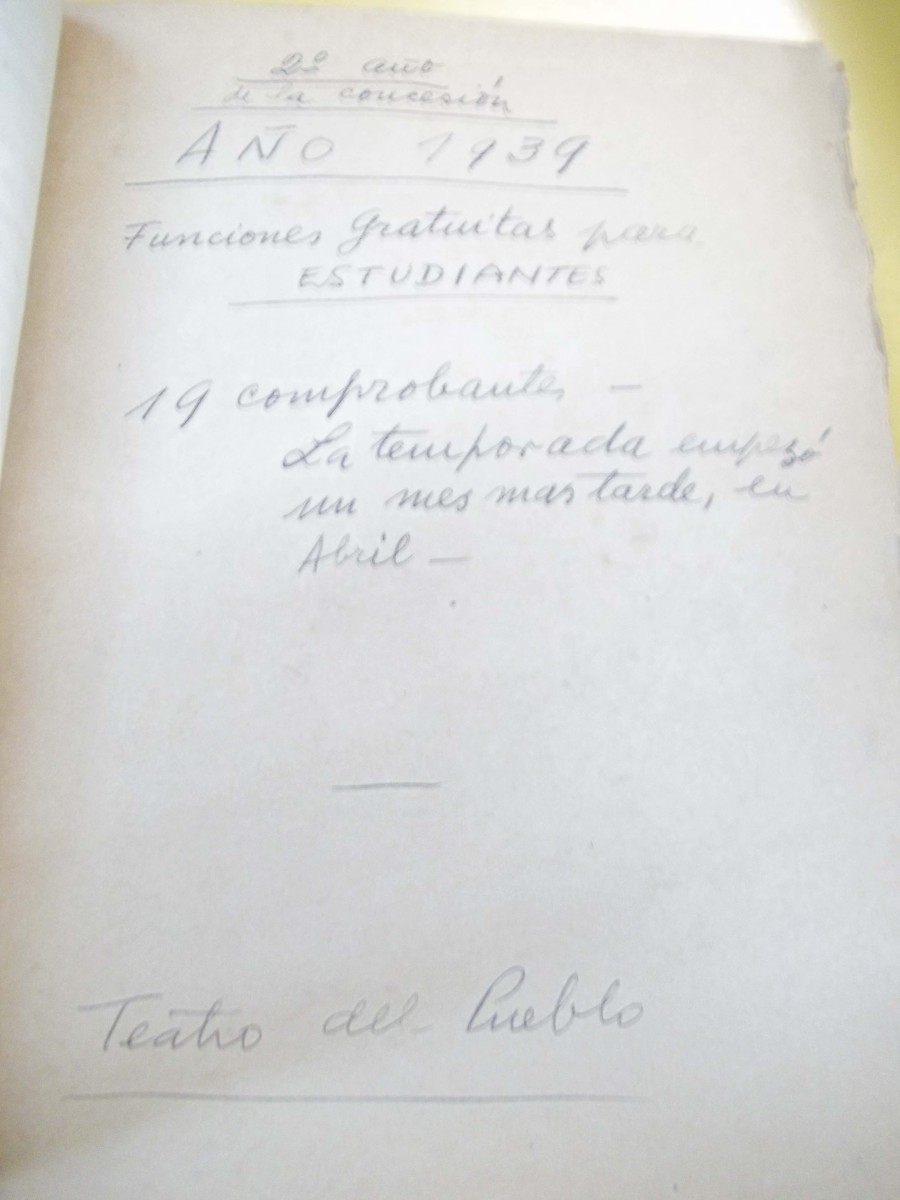 2º año
de la concesión
AÑO 1939
Funciones gratuitas para
ESTUDIANTES
19 comprobantes —
La temporada empezó
un mes mas tarde, en
Abril —
Teatro del Pueblo